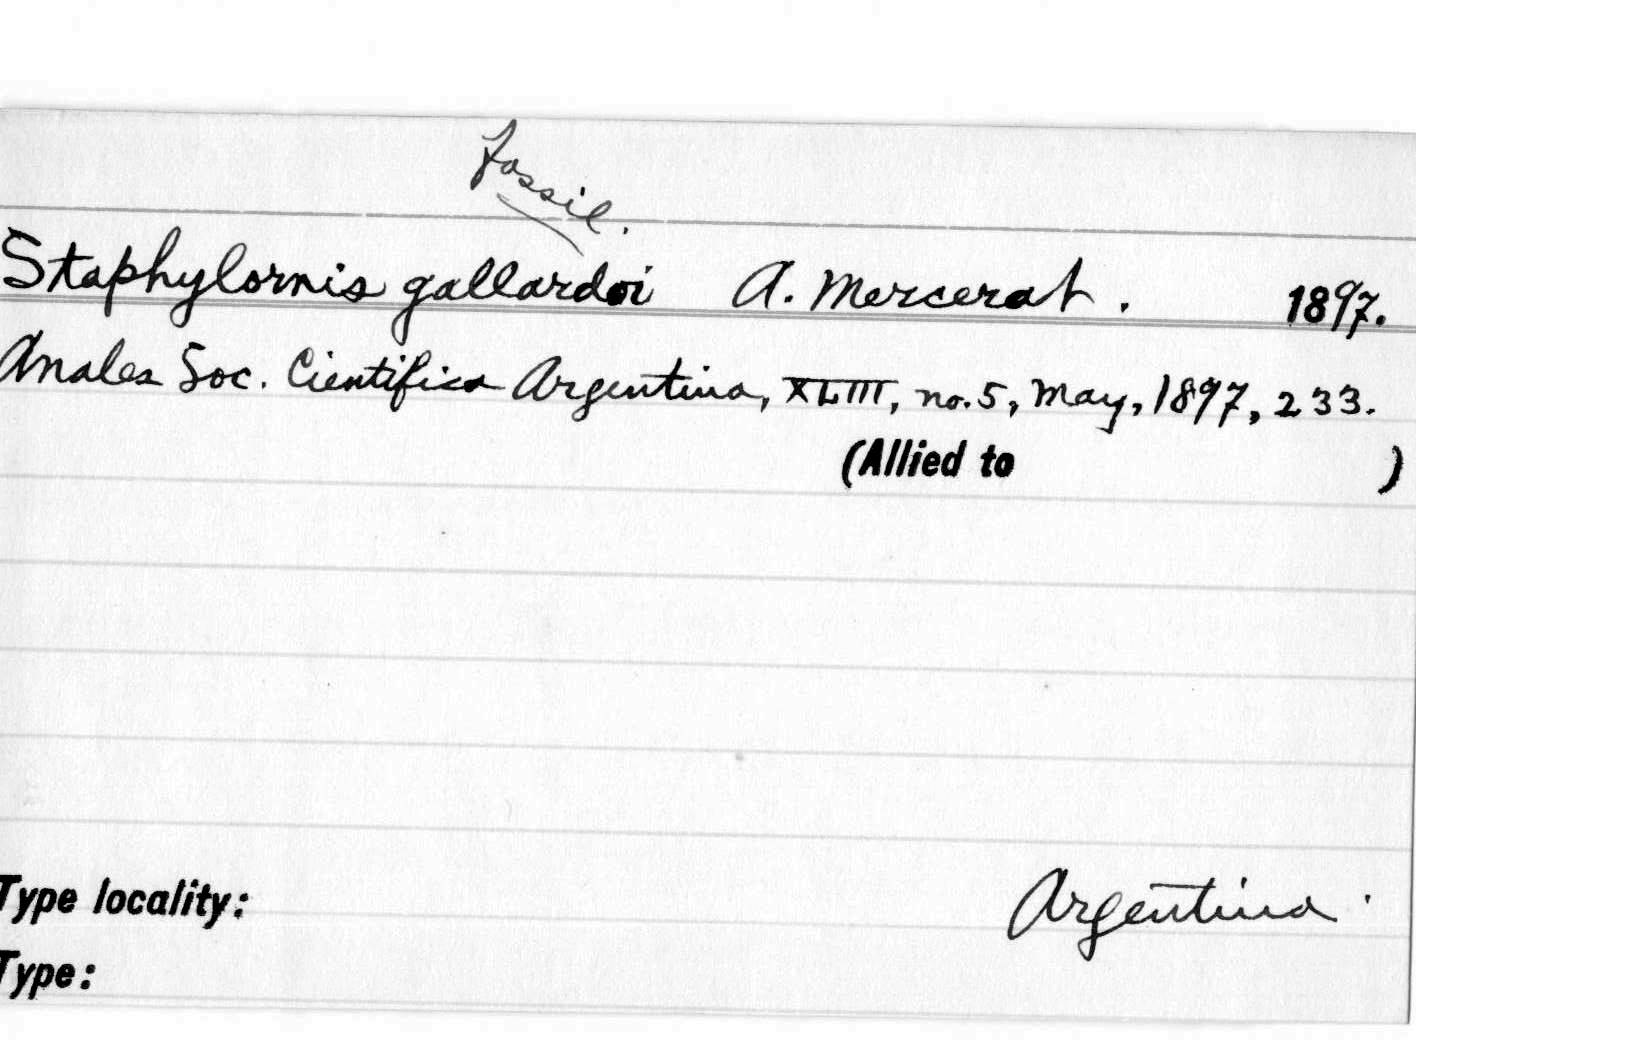 Fossil.
Staphylornis gallardoi A. Mercerat. 1897.
Anales Soc. Cientifica Argentina, XLIII, no. 5, May, 1897, 233.
(Allied to )
Type locality: Argentina.
Type: